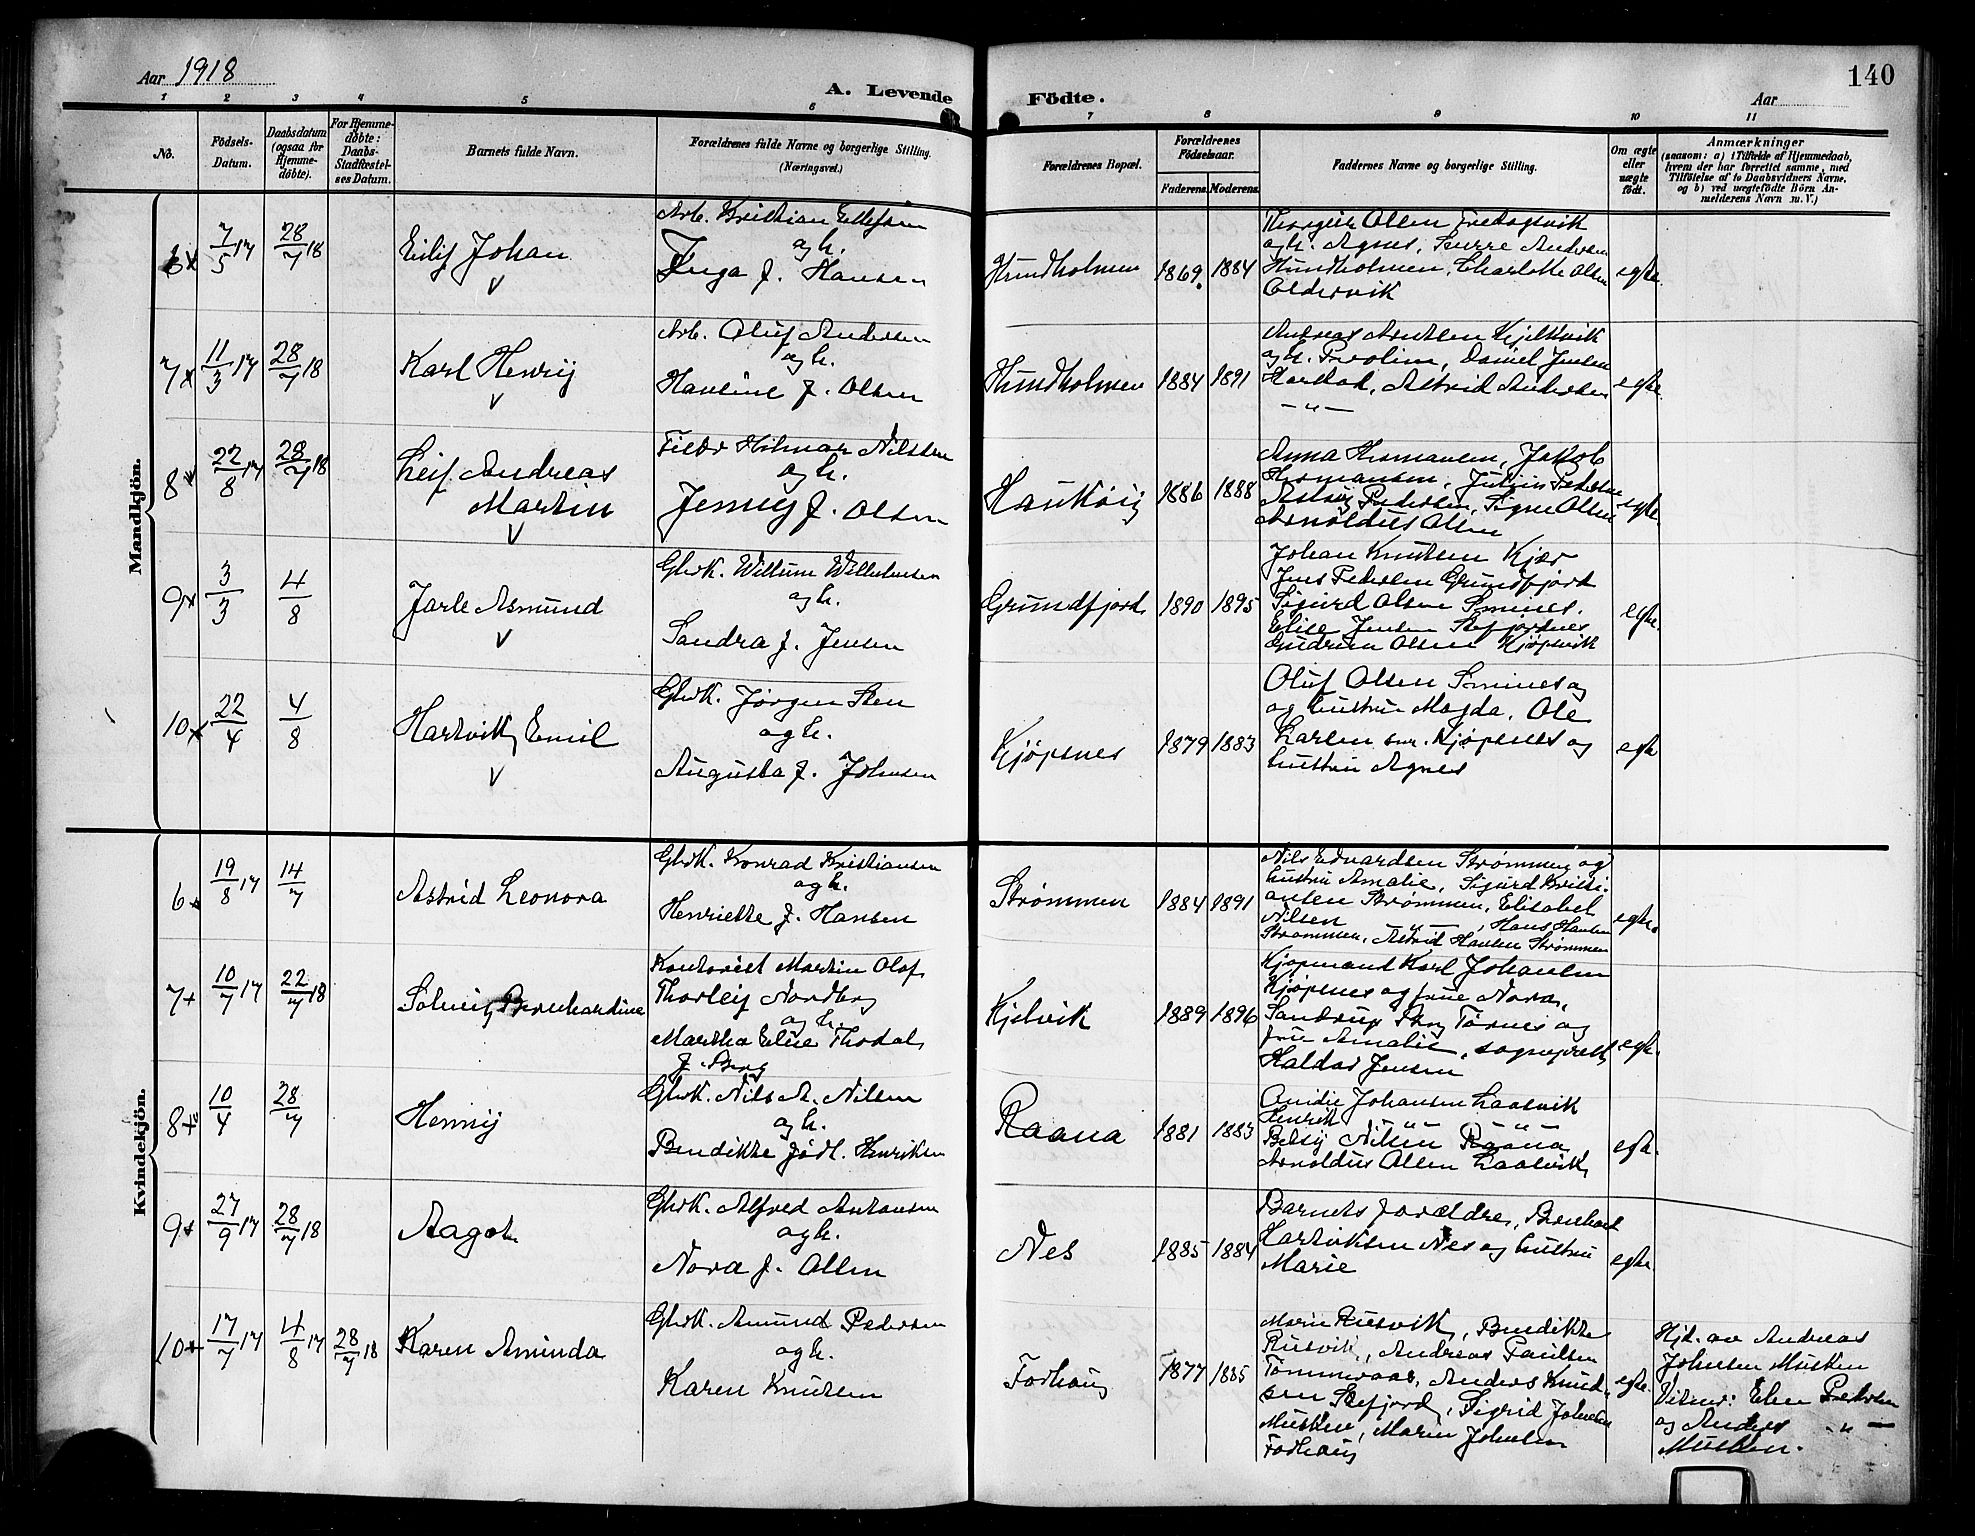 Aar 1918
A. Levende
Födte.
Aar
140
1 2 3 4 5 6 7 8 9 10 11
No.
Födsels-
Datum.
Daabsdatum
(ogsaa for
Hjemme-
döbte).
For Hjemme-
döbte:
Daabs-
Stadfæstel-
ses Datum.
Barnets fulde Navn.
Forældrenes fulde Navne og borgerlige Stilling.
(Næringsvei.)
Forældrenes Bopæl.
Forældrenes
Födselsaar.
Faderens. Moderens.
Faddernes Navne og borgerlige Stilling.
Om ægte
eller
uægte
födt.
Anmærkninger
(saasom: a) i Tilfælde af Hjemmedaab,
hvem der har forrettet samme, med
Tilföielse af to Daabsvidners Navne,
og b) ved uægtefödte Börn An-
melderens Navn m. V.)
Mandkjön.
6 7/5 17 28/7 18
Eilif Johan
Arb. Kristian Ellefsen
og h.
Inga f. Hansen
Hundholmen 1869 1884
Thorgeir Olsen Fredagsvik
og h. Agnes, Sverre Andersen
Hundholmen, Charlotte Olsen
Oldervik
egte.
7 11/3 17 28/7 18
Karl Henry
Arb. Oluf Andersen
og h.
Hansine f. Olsen
Hundholmen 1884 1891
Andreas Arntsen Kjelkvik
og h. Pauline, Daniel Jensen
Harstad, Astrid Andersen
— " —
egte.
8 22/8 17 28/7 18
Leif Andreas
Martin
Hilmar Nilssen
og h.
Jenny f. Olsen
Haukøig 1886 1888
Anna Hermansen, Jakob
Hermansen, Pedersen
Astrid Pedersen, Signe Olsen
Arnoldus Olsen
egte.
9 3/3 4/8
Jarle Asmund
Gbrk. Willum Wilhelmsen
og h.
Sandra f. Jensen
Grundfjord 1890 1895
Johan Knutsen Kjær
Jens Pedersen Grundfjord
Sigurd Olsen Smines.
Elise Jensen Stefjordnes
Gudrun Olsen Kjøpsvik
egte.
10 22/4 4/8
Hartvik Emil
Gbrk. Jørgen Sten
og h.
Augusta f. Johnsen
Kjöpsnes 1879 1883
Oluf Olsen Smines og
og hustru Magda, Ole
Larsen snr. Kjøpsnes og
hustru Agnes
egte
Kvindekjön.
6 19/8 17 14/7
Astrid Leonora
Gbrk. Konrad Kristiansen
og h.
Henriette f. Hansen
Strømmen 1884 1891
Nils Edvardsen Strømmen og
hustru Amalie, Sigurd Kristi-
ansen Strømmen, Elisabet
Nilsen — " —, Hans Hansen
Strømmen, Astrid Hansen Strømmen
egte.
7 10/7 17 22/7 18
Solveig Bernhardine
Kontorist Martin Olaf
Thorleif Nordberg
og h.
Martha Elise Thodal
f. Berg
Kjelvik 1889 1896
Kjøpmand Karl Johansen
Kjöpsnes og frue Nora,
Tørnes og
frue Amalie, sogneprest
Haldor Jensen
egte.
8 10/4 28/7
Henny
Gbrk. Nils A. Nilsen
og h.
Bendikte født Henriksen
Raana 1881 1883
Johansen Laasvik
Henrik — " — — " —
Betsy Nilsen Raana
Arnoldus Olsen Laasvik
egte.
9 27/9 17 28/7 18
Aagot
Gbrk. Alfred Antonsen
og h.
Nora f. Olsen
Nes 1885 1884
Barnets forældre, Bernhard
Hartviksen Nes og hustru
Marie
egte.
10 17/7 17 4/8 17 28/7 18
Karen Aminda
Gbrk. Amund Pedersen
og h.
Karen Knutsen
Forhaug 1877 1885
Marie Rusvik, Bendikte
Rusvik, Andreas Paulsen
Tømmeraas, Anders Knud-
sen Stefjord, Sigrid Johnsen
Musken, Marie Johnsen
Forhaug
egte.
Hjd. av Andreas
Johnsen Musken
Vitner: Elen Pedersen
og Anders — " —
Musken.